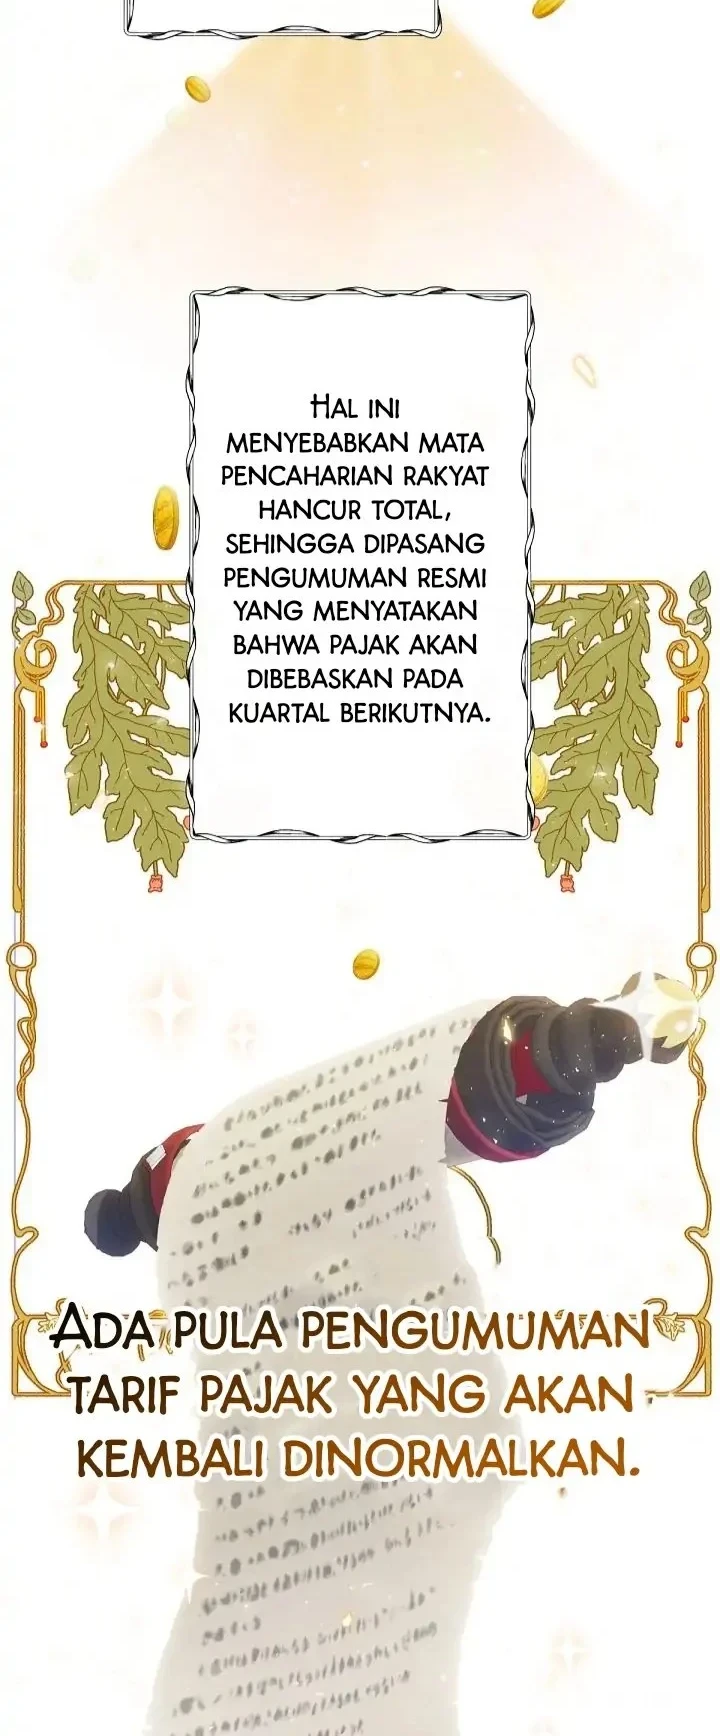 HAL INI
MENYEBABKAN MATA
PENCAHARIAN RAKYAT
HANCUR TOTAL,
SEHINGGA DIPASANG
PENGUMUMAN RESMI
YANG MENYATAKAN
BAHWA PAJAK AKAN
DIBEBASKAN PADA
KUARTAL BERIKUTNYA.
ADA PULA PENGUMUMAN
TARIF PAJAK YANG AKAN
KEMBALI DINORMALKAN.